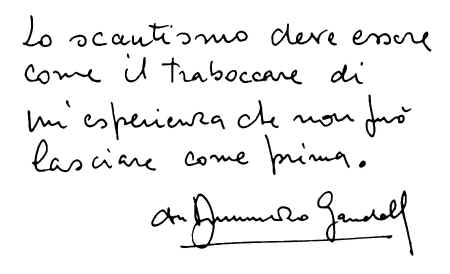 Lo scautismo deve essere
come il traboccare di
un'esperienza che non può
lasciare come prima.